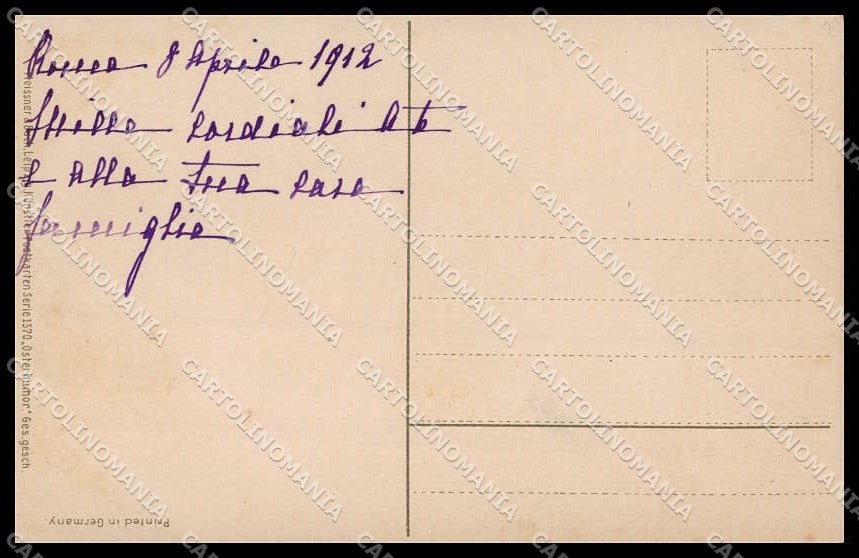 Roma 8 Aprile 1912
cordiali A te
e alla Tua cara
famiglia
Meissner & Buch, Leipzig, Künstler-Postkarten Serie 1370 „Osterhumor.“ Ges. gesch
Printed in Germany.
CARTOLINOMANIA